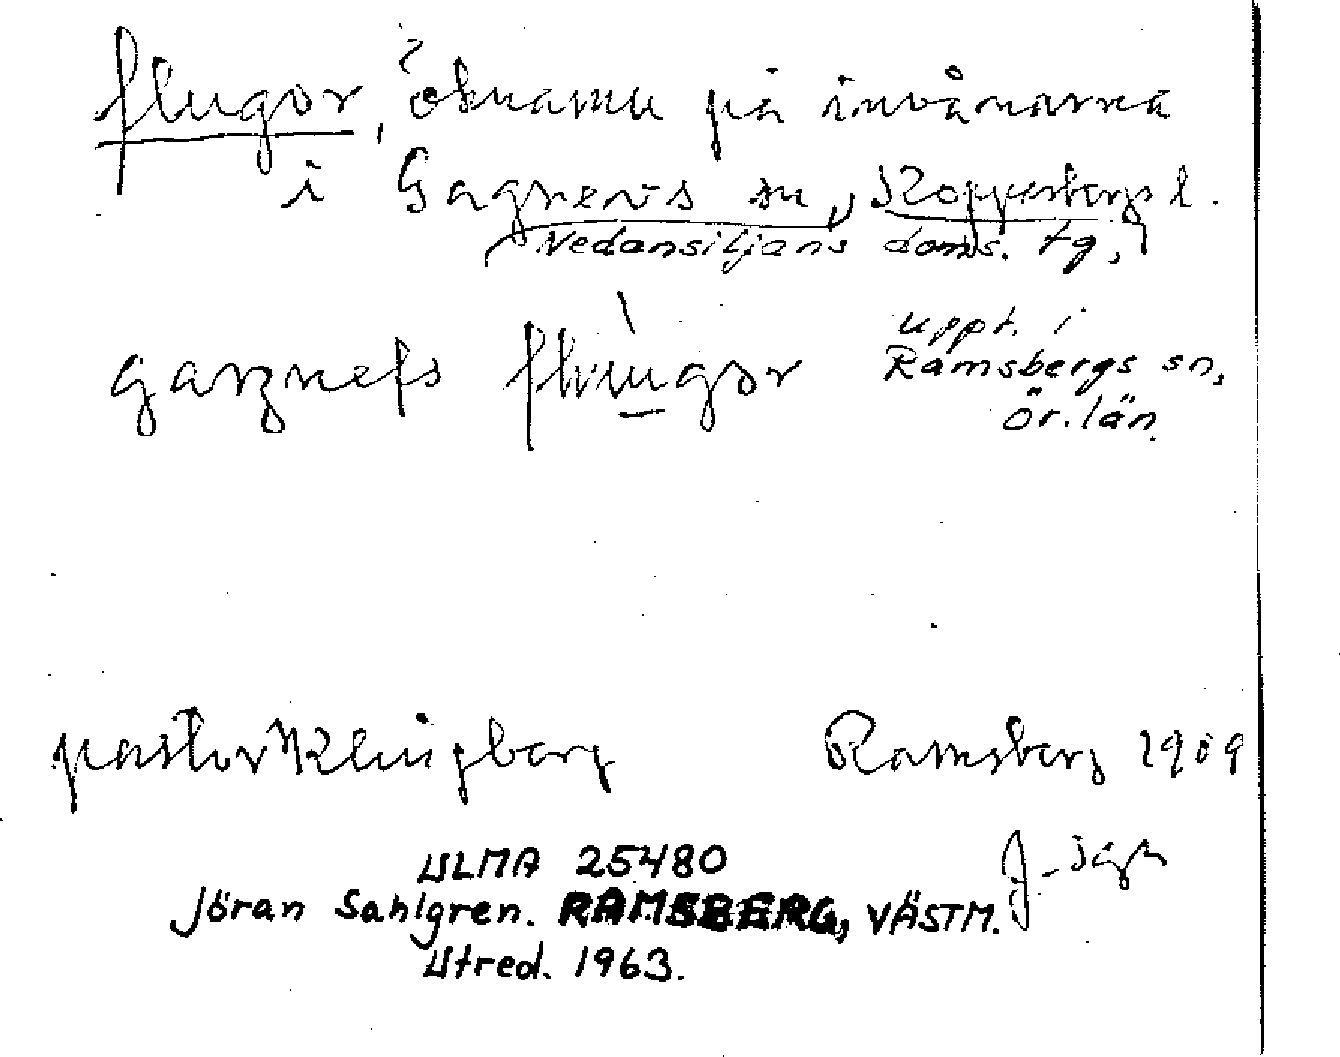 flugor, öknamn på invånarna
i Gagnevs sn, Kopparbergs l.
Nedansiljans doms. tg,
uppt. i
Ramsbergs sn,
ör. län.
pastor Klingberg Ramsberg 1909
J. Sgn
ULMA 25480
Jöran Sahlgren. RAMSBERG, VÄSTM.
Utred. 1963.